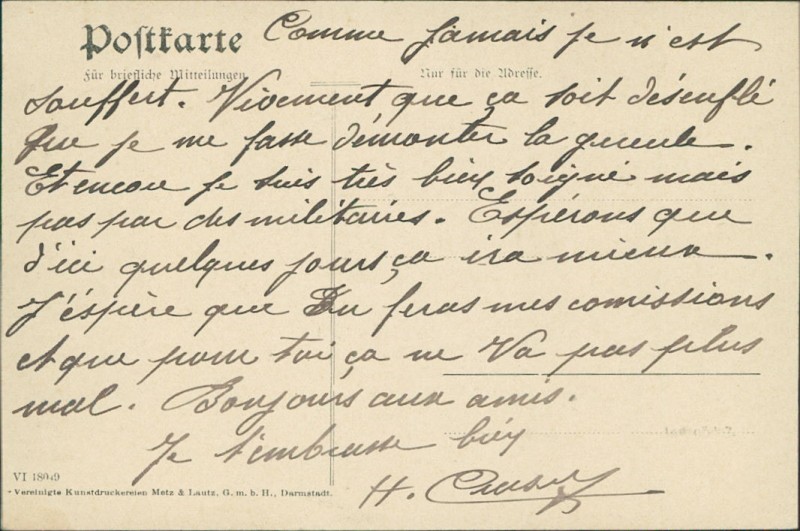 Postkarte Comme jamais je n'est
Für briefliche Mitteilungen. Nur für die Adresse.
souffert. Vivement que ça soit désenflé
que je me fasse démonter la gueule.
Et encore je suis très bien soigné mais
pas par des militaires. Espérons que
d'ici quelques jours ça ira mieux.
J'éspère que Tu feras mes comissions
et que pour toi ça ne Va pas plus
mal. Bonjours aux amis.
Je t'embrasse bien
H.
VI 18049
Vereinigte Kunstdruckereien Metz & Lautz, G. m. b. H., Darmstadt.